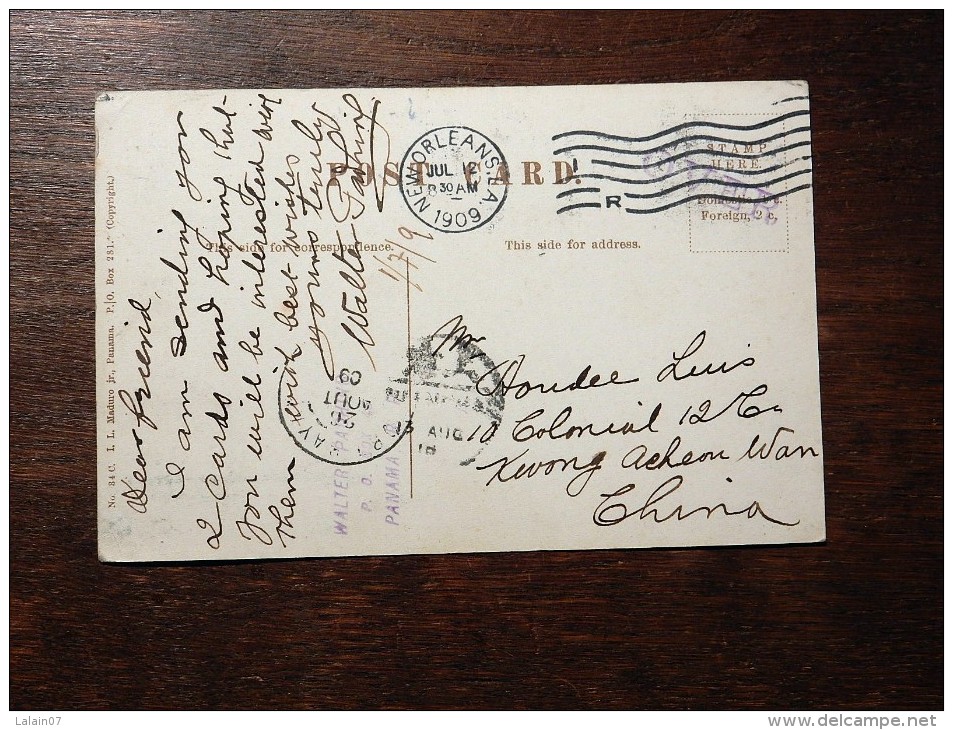 No. 34 C. I. L. Maduro jr., Panama. P. O. Box 281. (Copyright.)
POST CARD.
This side for correspondence.
This side for address.
STAMP
HERE.
Foreign, 2 c.
OVER
NEW ORLEANS, LA.
JUL 12
8 30 AM
1909
R
Dear friend,
I am sending you
2 cards and hoping that
you will be interested with
them with best wishes
yours truly
Walter
1/7/9
WALTER
P. O.
PANAMA
20
AOUT
09
AUG
Mr
Hondee Luis
10 Colonial 12 Co
Kwong Acheou Wan
China
Lalain07
www.delcampe.net